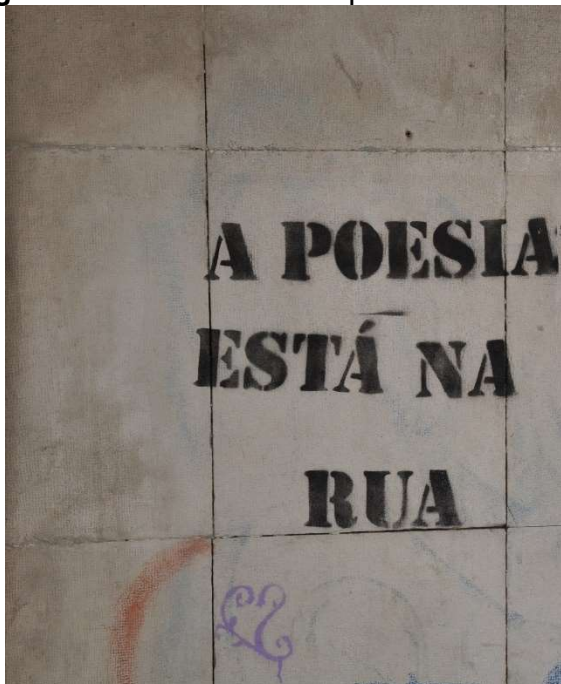 A POESIA
ESTÁ NA
RUA